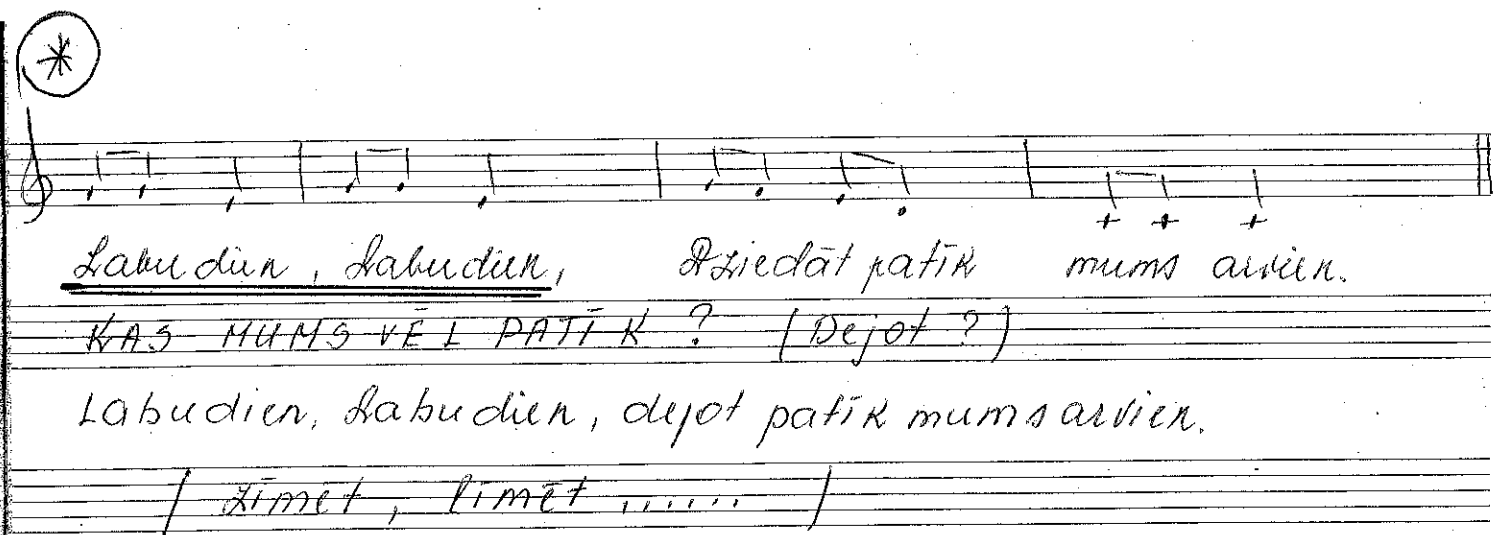 Labudien, Labudien, Dziedāt patīk mums arvien.
KAS MUMS VĒL PATĪK ? (Dejot ?)
Labudien, Labudien, dejot patīk mums arvien.
/ Zīmēt, līmēt ...... /